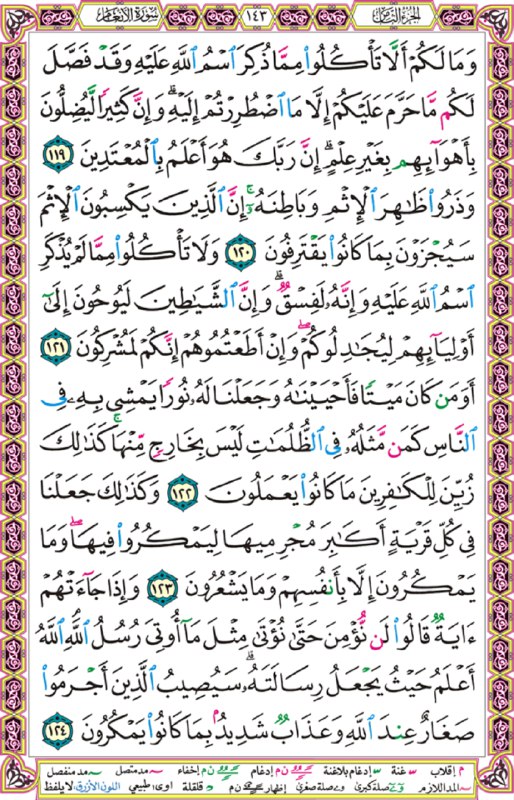 الجزء الثامن ١٤٣ سورة الأنعام
وَمَا لَكُمْ أَلَّا تَأْكُلُوا۟ مِمَّا ذُكِرَ ٱسْمُ ٱللَّهِ عَلَيْهِ وَقَدْ فَصَّلَ
لَكُم مَّا حَرَّمَ عَلَيْكُمْ إِلَّا مَا ٱضْطُرِرْتُمْ إِلَيْهِ ۗ وَإِنَّ كَثِيرًا لَّيُضِلُّونَ
بِأَهْوَآئِهِم بِغَيْرِ عِلْمٍ ۗ إِنَّ رَبَّكَ هُوَ أَعْلَمُ بِٱلْمُعْتَدِينَ ١١٩
وَذَرُوا۟ ظَـٰهِرَ ٱلْإِثْمِ وَبَاطِنَهُۥٓ ۚ إِنَّ ٱلَّذِينَ يَكْسِبُونَ ٱلْإِثْمَ
سَيُجْزَوْنَ بِمَا كَانُوا۟ يَقْتَرِفُونَ ١٢٠ وَلَا تَأْكُلُوا۟ مِمَّا لَمْ يُذْكَرِ
ٱسْمُ ٱللَّهِ عَلَيْهِ وَإِنَّهُۥ لَفِسْقٌ ۗ وَإِنَّ ٱلشَّيَـٰطِينَ لَيُوحُونَ إِلَىٰٓ
أَوْلِيَآئِهِمْ لِيُجَـٰدِلُوكُمْ ۖ وَإِنْ أَطَعْتُمُوهُمْ إِنَّكُمْ لَمُشْرِكُونَ ١٢١
أَوَمَن كَانَ مَيْتًا فَأَحْيَيْنَـٰهُ وَجَعَلْنَا لَهُۥ نُورًا يَمْشِى بِهِۦ فِى
ٱلنَّاسِ كَمَن مَّثَلُهُۥ فِى ٱلظُّلُمَـٰتِ لَيْسَ بِخَارِجٍ مِّنْهَا ۚ كَذَٰلِكَ
زُيِّنَ لِلْكَـٰفِرِينَ مَا كَانُوا۟ يَعْمَلُونَ ١٢٢ وَكَذَٰلِكَ جَعَلْنَا
فِى كُلِّ قَرْيَةٍ أَكَـٰبِرَ مُجْرِمِيهَا لِيَمْكُرُوا۟ فِيهَا ۖ وَمَا
يَمْكُرُونَ إِلَّا بِأَنفُسِهِمْ وَمَا يَشْعُرُونَ ١٢٣ وَإِذَا جَآءَتْهُمْ
ءَايَةٌ قَالُوا۟ لَن نُّؤْمِنَ حَتَّىٰ نُؤْتَىٰ مِثْلَ مَآ أُوتِىَ رُسُلُ ٱللَّهِ ۘ ٱللَّهُ
أَعْلَمُ حَيْثُ يَجْعَلُ رِسَالَتَهُۥ ۗ سَيُصِيبُ ٱلَّذِينَ أَجْرَمُوا۟
صَغَارٌ عِندَ ٱللَّهِ وَعَذَابٌ شَدِيدٌۢ بِمَا كَانُوا۟ يَمْكُرُونَ ١٢٤
م إقلاب س غنة س إدغام بلاغنة ن م إدغام ن م إخفاء مد متصل مد منفصل
المد اللازم صلة كبرى صلة صغرى إظهار ن م قلقلة اوى: طبيعي اللون الأزرق: لايلفظ